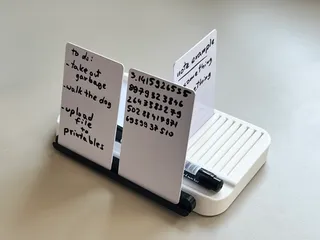 to do:
- take out
garbage
- walk the dog
- upload
file
to
printables
3.1415926535
8979323846
2643383279
5028841971
6939937510
note example
something
thing